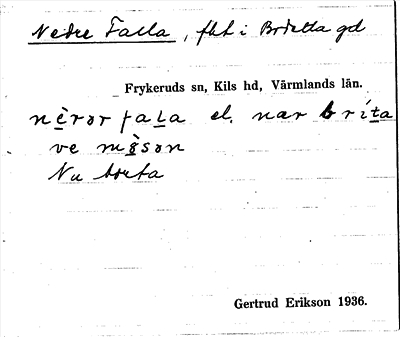 Nedre Falla, fht i Britetta gd
Frykeruds sn, Kils hd, Värmlands län.
nèrər faḷa el. nær bríta
ve mǫ̀sən
Nu borta
Gertrud Erikson 1936.